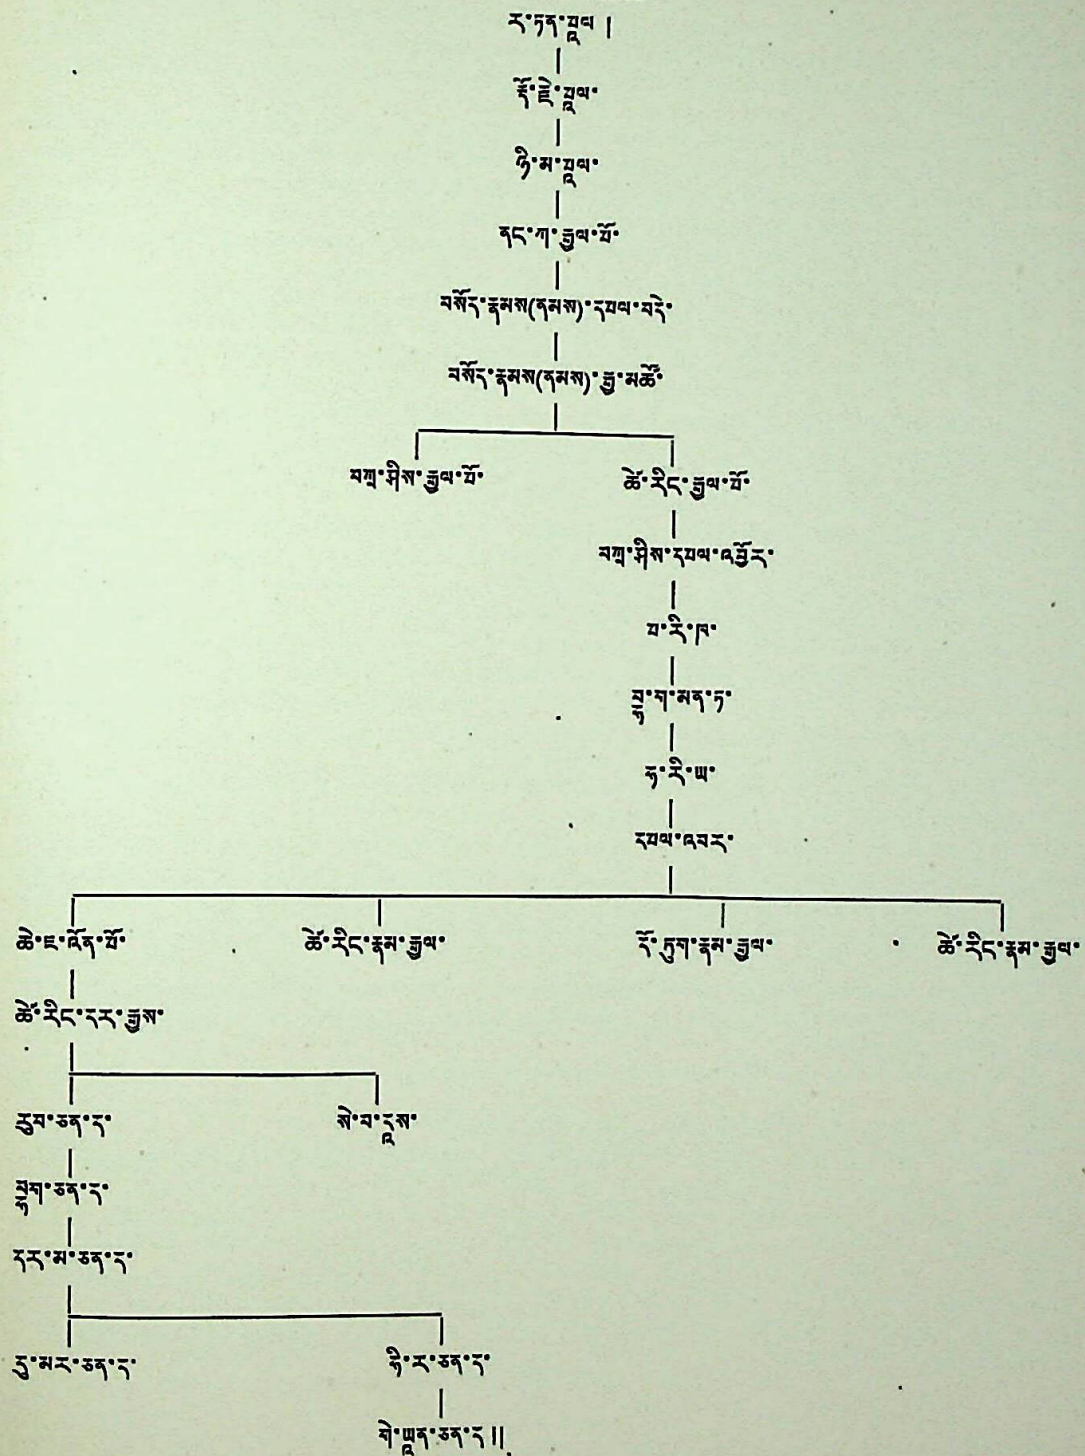 ར་ཏན་པཱལ །
རྡོ་རྗེ་པཱལ་
ཉི་མ་པཱལ་
ནང་ཀ་རྒྱལ་པོ་
བསོད་རྣམས(ནམས)་དཔལ་བདེ་
བསོད་རྣམས(ནམས)་རྒྱ་མཚོ་
བཀྲ་ཤིས་རྒྱལ་པོ་ ཚེ་རིང་རྒྱལ་པོ་
བཀྲ་ཤིས་དཔལ་འབྱོར་
པ་རི་ཁ་
བྷ་ག་མན་ཏ་
ཧ་རི་ཡ་
དཔལ་འབར་
ཆེ་ཇ་འོན་པོ་ ཚེ་རིང་རྣམ་རྒྱལ་ དོ་ཏུག་རྣམ་རྒྱལ་ ཚེ་རིང་རྣམ་རྒྱལ་
ཚེ་རིང་དར་རྒྱས་
རུབ་ཅན་ད་ སེ་བ་དཱས་
ཅན་ད་
དར་མ་ཅན་ད་
མར་ཅན་ད་ ཧི་ར་ཅན་ད་
གེ་ཡཱན་ཅན་ད །།